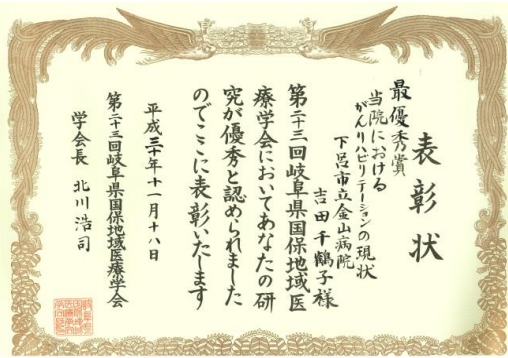 表彰状
最優秀賞
当院における
がんリハビリテーションの現状
下呂市立金山病院
吉田千鶴子様
第二十三回岐阜県国保地域医
療学会においてあなたの研
究が優秀と認められました
のでここに表彰いたします
平成三十年十一月十八日
第二十三回岐阜県国保地域医療学会
学会長 北川浩司